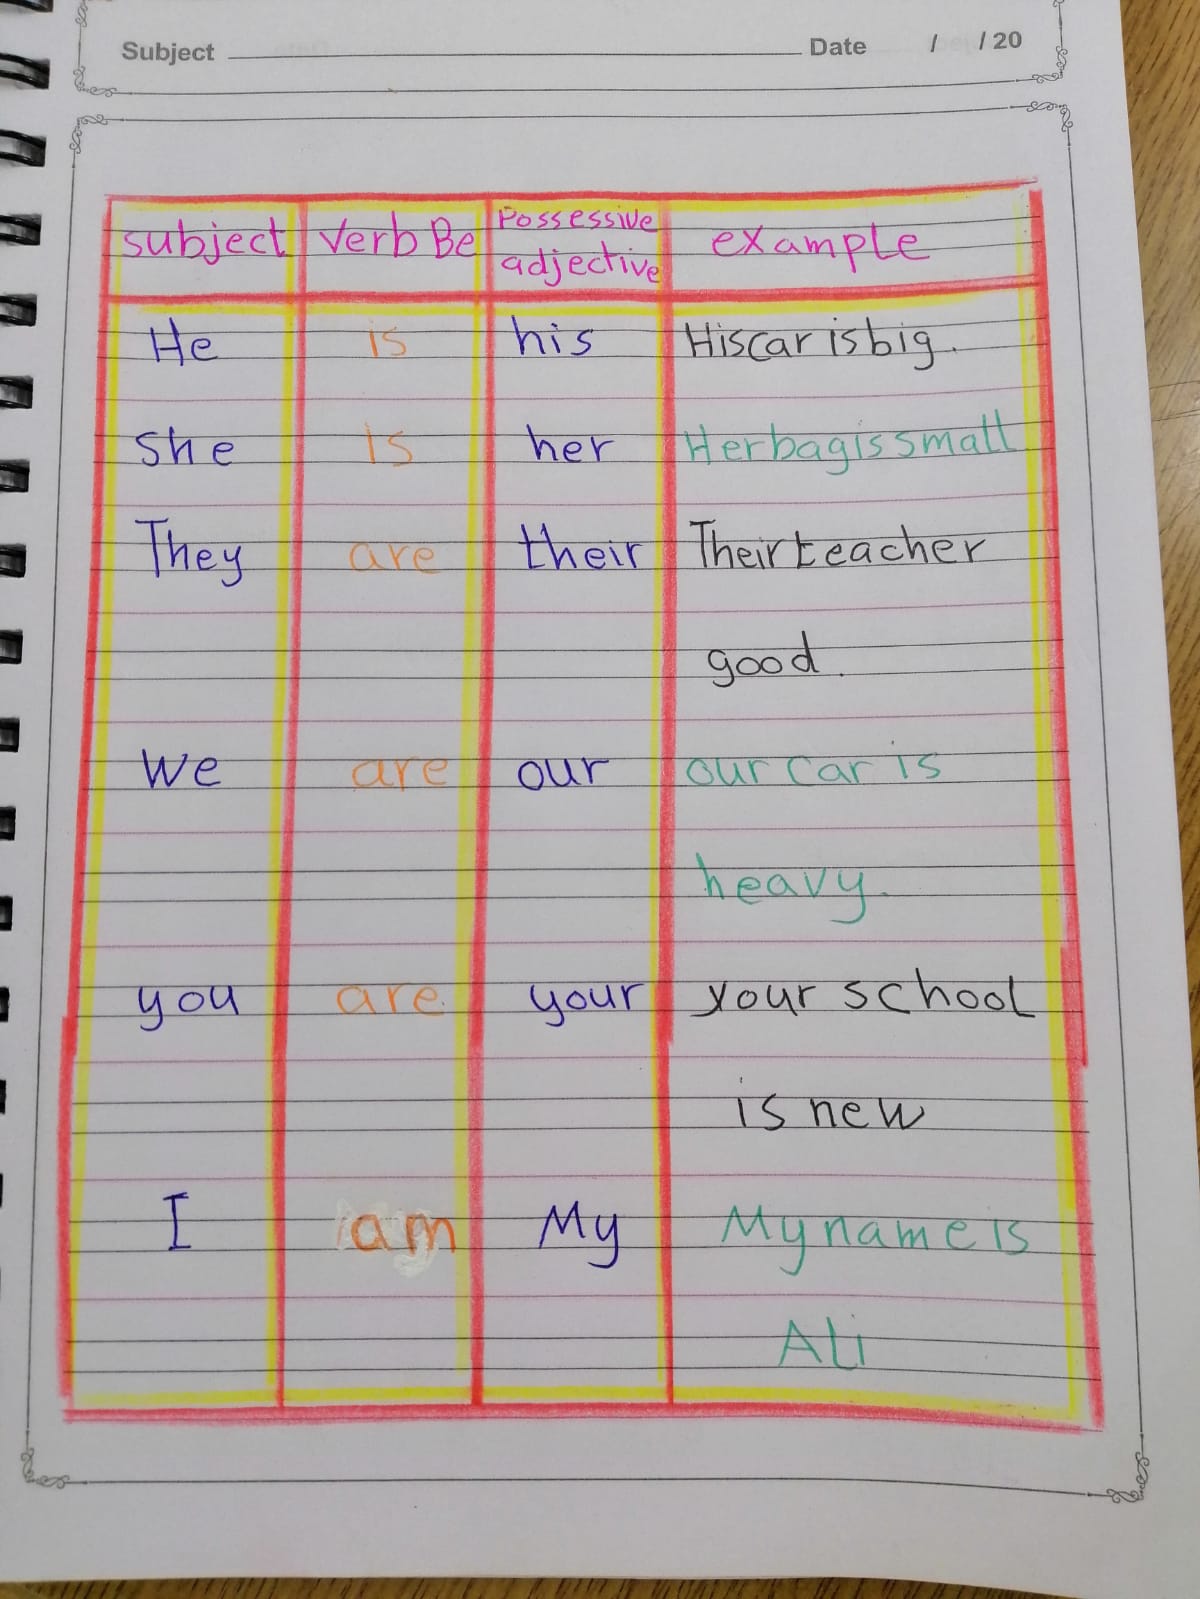 Subject Date / / 20
subject verb Be Possessive adjective example
He is his His car is big.
she is her Her bag is small
They are their Their teacher
good.
We are our our car is
heavy.
you are your your school
is new
I am My My name is
Ali